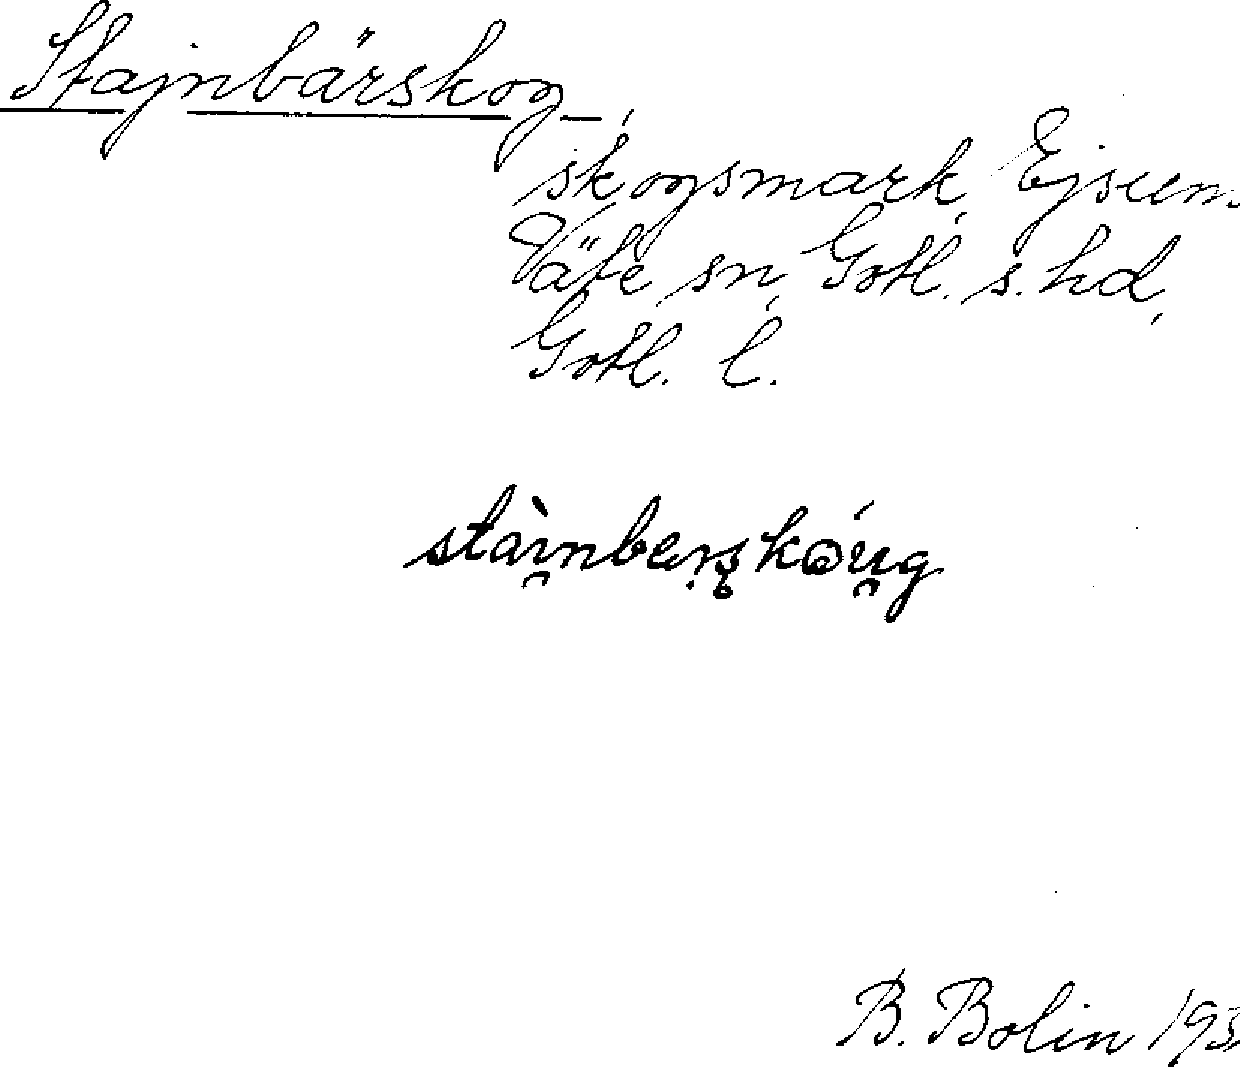 Stajnbärskog,
skogsmark, Ejsum
Väte sn, Gotl. s. hd,
Gotl. l.
stai̯nberskou̯g
B. Bolin 193